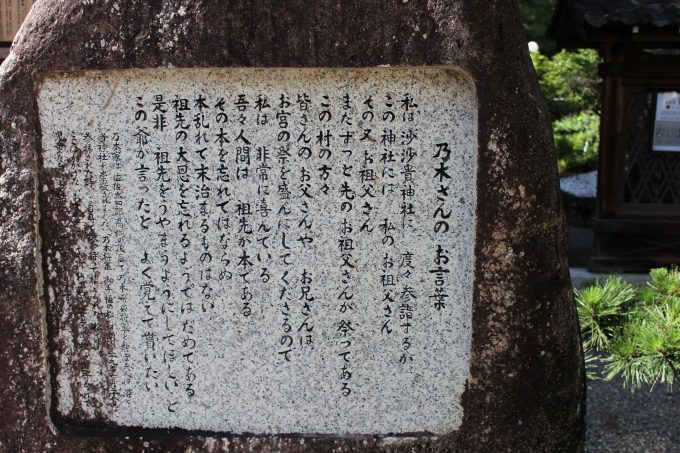 乃木さんの お言葉
私は沙沙貴神社に 度々参詣するが
この神社には 私のお祖父さん
その又お祖父さん
まだずっと先のお祖父さんが 祭ってある
この村の方々
皆さんの お父さんや お兄さんは
お宮の祭を盛んにしてくださるので
私は 非常に喜んでいる
吾々人間は 祖先が本である
その本を忘れてはならぬ
本乱れて末治まるものはない
祖先の大恩を忘れるようではだめである
是非 祖先をうやまうようにしてほしいと
この爺が言ったと よく覚えて貰いたい